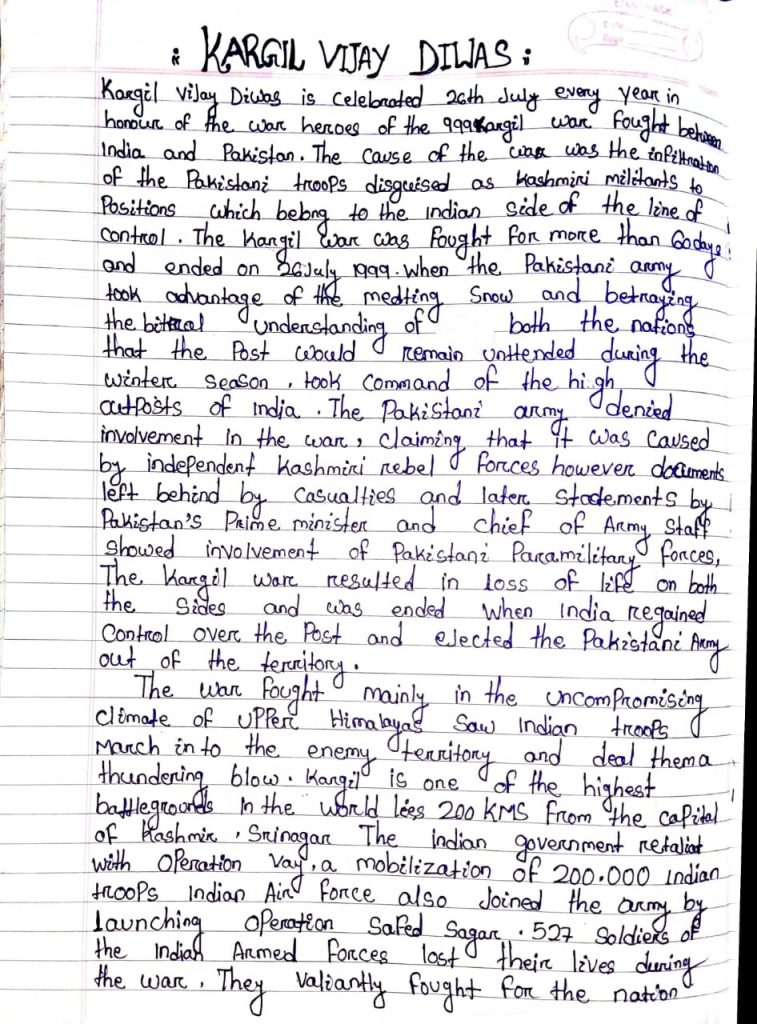 : KARGIL VIJAY DIWAS :
Kargil Vijay Diwas is celebrated 26th July every year in
honour of the war heroes of the 999 Kargil war fought between
India and Pakistan. The cause of the war was the infiltration
of the Pakistani troops disguised as Kashmiri militants to
Positions which belong to the indian side of the line of
control. The Kargil war was fought for more than 60 days
and ended on 26 July 1999. When the Pakistani army
took advantage of the medting Snow and betraying
the understanding of both the nations
that the Post would remain unttended during the
winter season, took command of the high
outposts of india. The Pakistani army denied
involvement in the war, claiming that it was caused
by independent Kashmiri rebel forces however documents
left behind by casualties and later Stadements by
Pakistan's Prime minister and chief of Army Staff
showed involvement of Pakistani Paramilitary forces,
The Kargil war resulted in loss of life on both
the Sides and was ended when India regained
Control over the Post and ejected the Pakistani Army
out of the territory.
The war fought mainly in the uncompromising
climate of upper Himalayas Saw indian troops
March in to the enemy territory and deal them a
thundering blow. Kargil is one of the highest
battlegrounds in the world lees 200 KMS from the capital
of Kashmir, Srinagar The indian government retaliat
with Operation Vay, a mobilization of 200.000 indian
troops Indian Air force also Joined the army by
launching Operation Safed Sagar. 527 Soldiers of
the Indian Armed forces lost their lives during
the war. They Valiantly fought for the nation